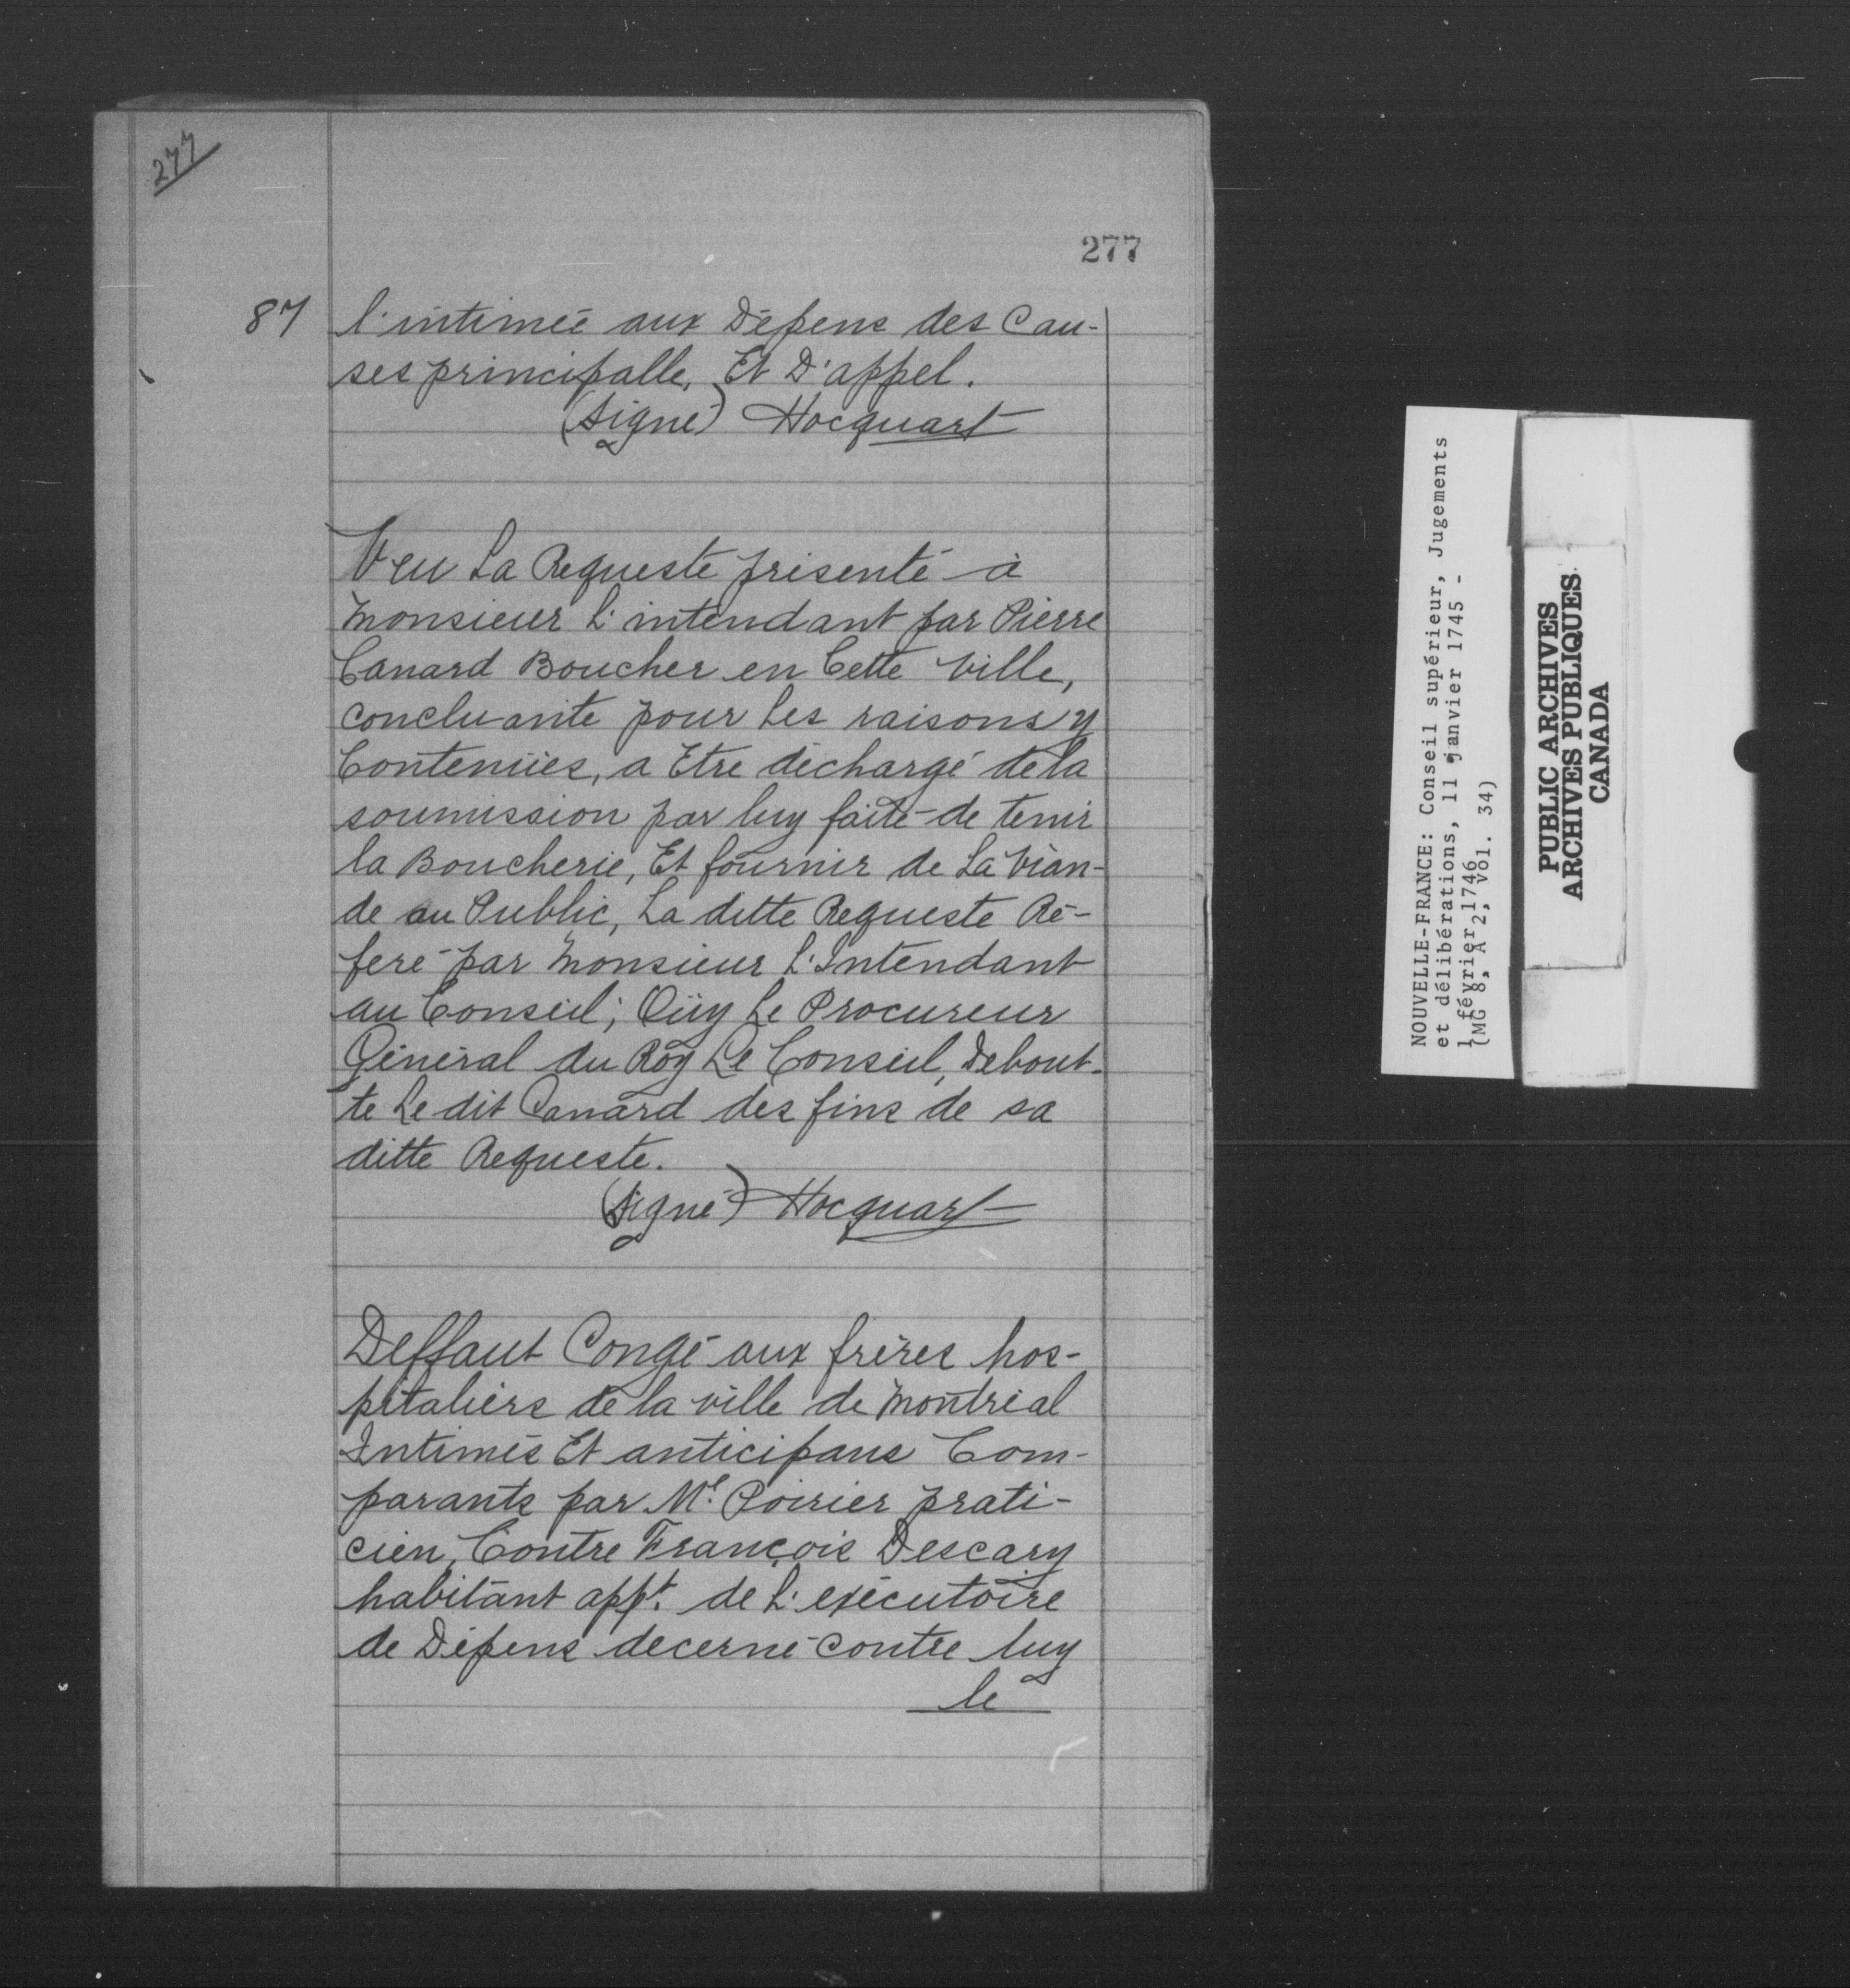 277
277
87
l'intimée aux Dépens des Cau-
ses principalle, Et D'appel.
(Signé) Hocquart
Veu La Requeste présenté à
Monsieur L'intendant par Pierre
Canard Boucher en Cette Ville,
concluante pour les raisons y
Contenües, a Etre déchargé de la
soumission par luy faite de tenir
la Boucherie, Et fournir de La Vian-
de au Public, La ditte Requeste Ré-
feré par Monsieur L'Intendant
au Conseil; Oüy Le Procureur
Général du Roy Le Conseil, Debout-
te Le dit Canard des fins de sa
ditte Requeste.
(Signé) Hocquart
Deffaut Congé aux frères hos-
pitaliers de la ville de Montréal
Intimés Et anticipans Com-
parants par Me. Poirier prati-
cien, Contre François Descary
habitant appt. de L'exécutoire
de Dépens decerné contre luy
le
NOUVELLE-FRANCE: Conseil supérieur, Jugements
et délibérations, 11 janvier 1745 -
1 février 1746
(MG 8, A 2, vol. 34)
PUBLIC ARCHIVES
ARCHIVES PUBLIQUES
CANADA